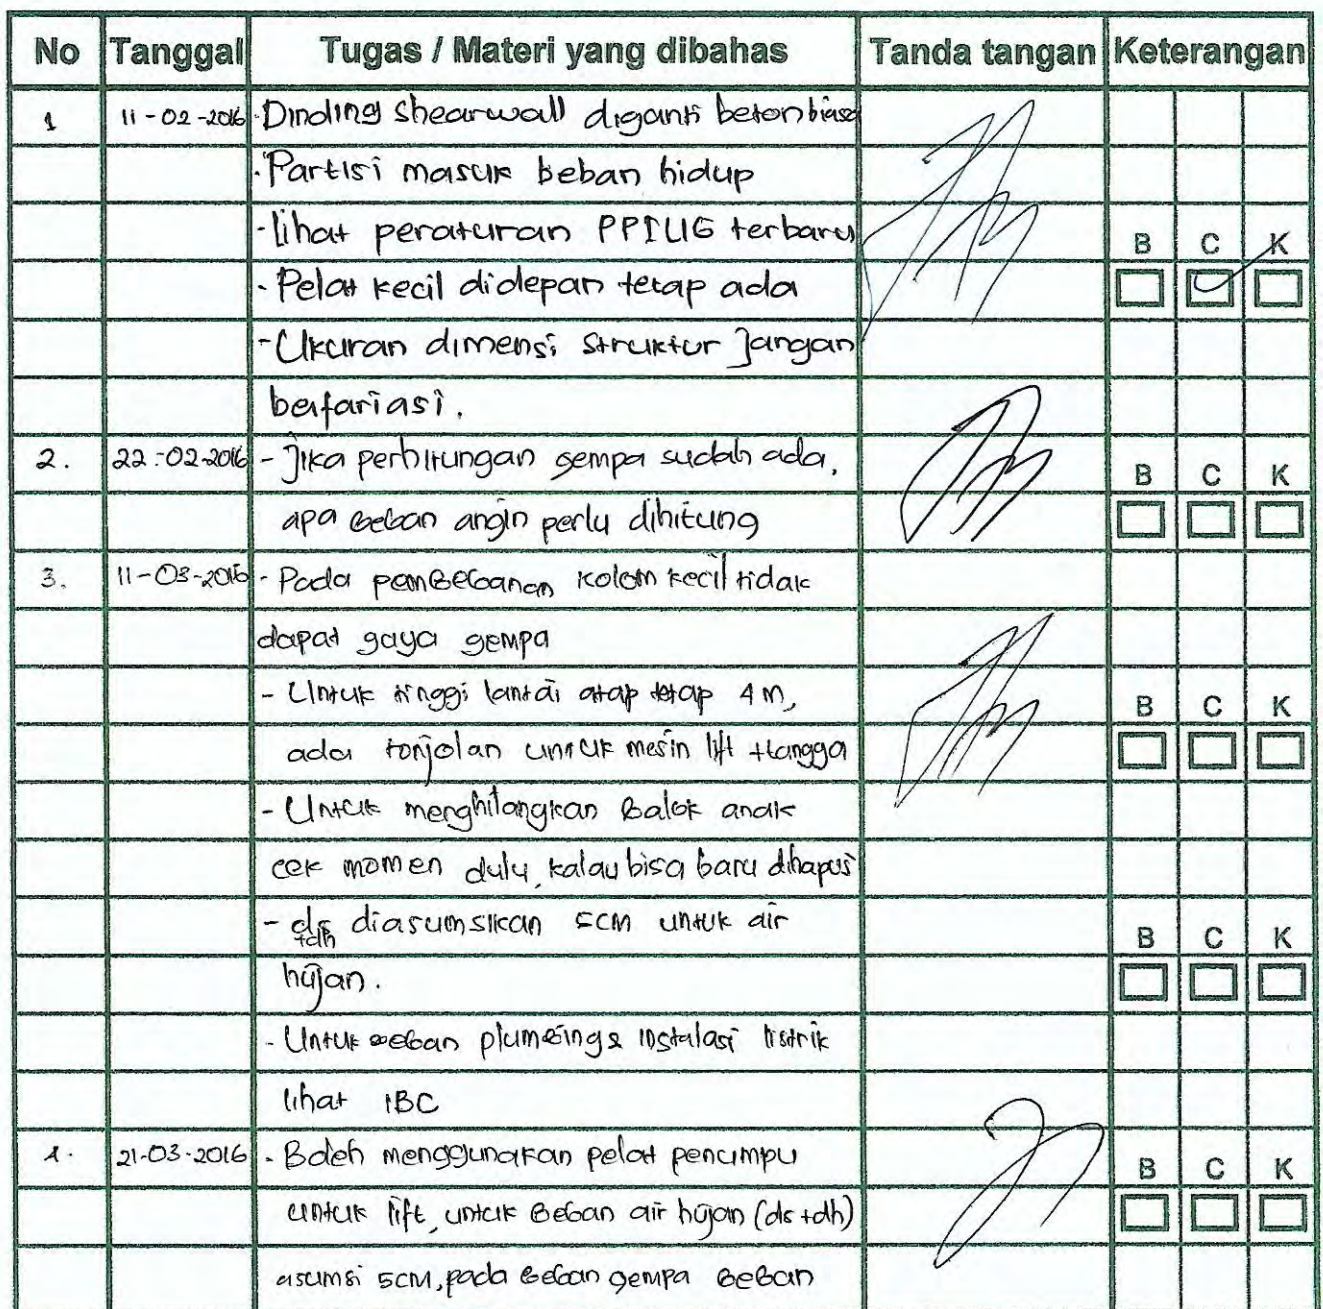 No Tanggal Tugas / Materi yang dibahas Tanda tangan Keterangan
1 11-02-2016 - Dinding shearwall diganti beton biasa
- Partisi masuk beban hidup
- lihat peraturan PPIUG terbaru
B C K
- Pelat kecil didepan tetap ada
- Ukuran dimensi struktur jangan
berfariasi.
2. 22-02-2016 - Jika perhitungan gempa sudah ada,
B C K
apa beban angin perlu dihitung
3. 11-03-2016 - Pada pembebanan kolom kecil tidak
dapat gaya gempa
- Untuk tinggi lantai atap tetap 4 m,
B C K
ada tonjolan untuk mesin lift + tangga
- Untuk menghilangkan Balok anak
cek momen dulu, kalau bisa baru dihapus
- ds + dh diasumsikan 5cm untuk air
B C K
hujan.
- Untuk beban plumbing & instalasi listrik
lihat IBC
4. 21-03-2016 - Boleh menggunakan pelat penumpu
B C K
untuk lift, untuk Beban air hujan (ds+dh)
asumsi 5cm, pada Beban gempa Beban